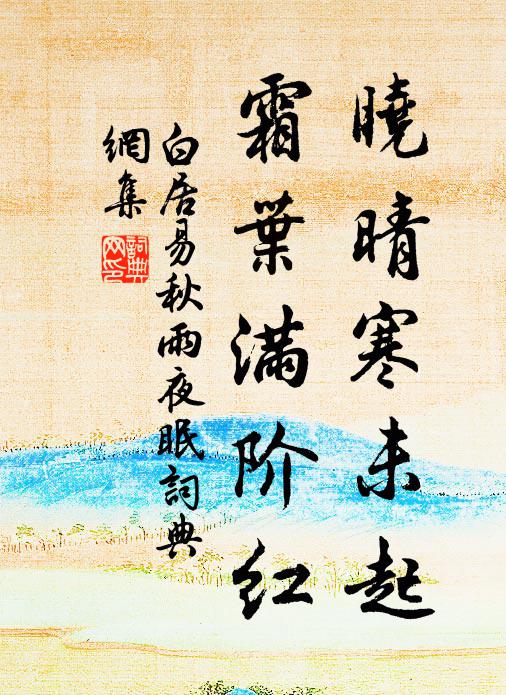 曉晴寒未起
霜葉满阶红
白居易秋雨夜眠詞典
網集
詞典网印